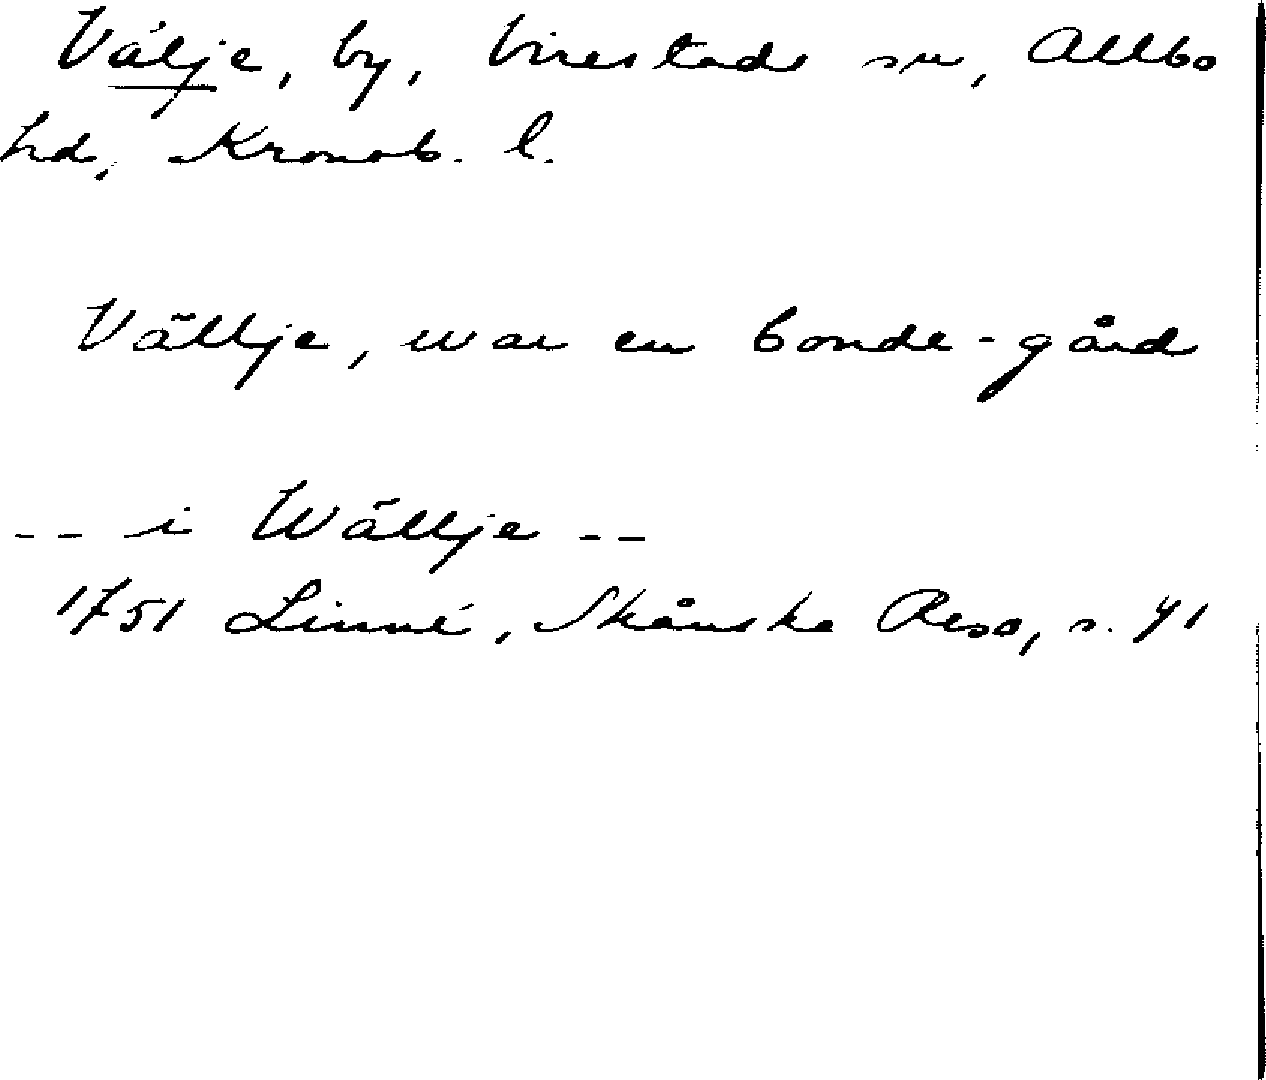 Välje, by, Virestads sn, Allbo
hd, Kronob. l.
Vällje, war en bonde-gård
-- i Wällje --
1751 Linné, Skånska Resa, s. 41